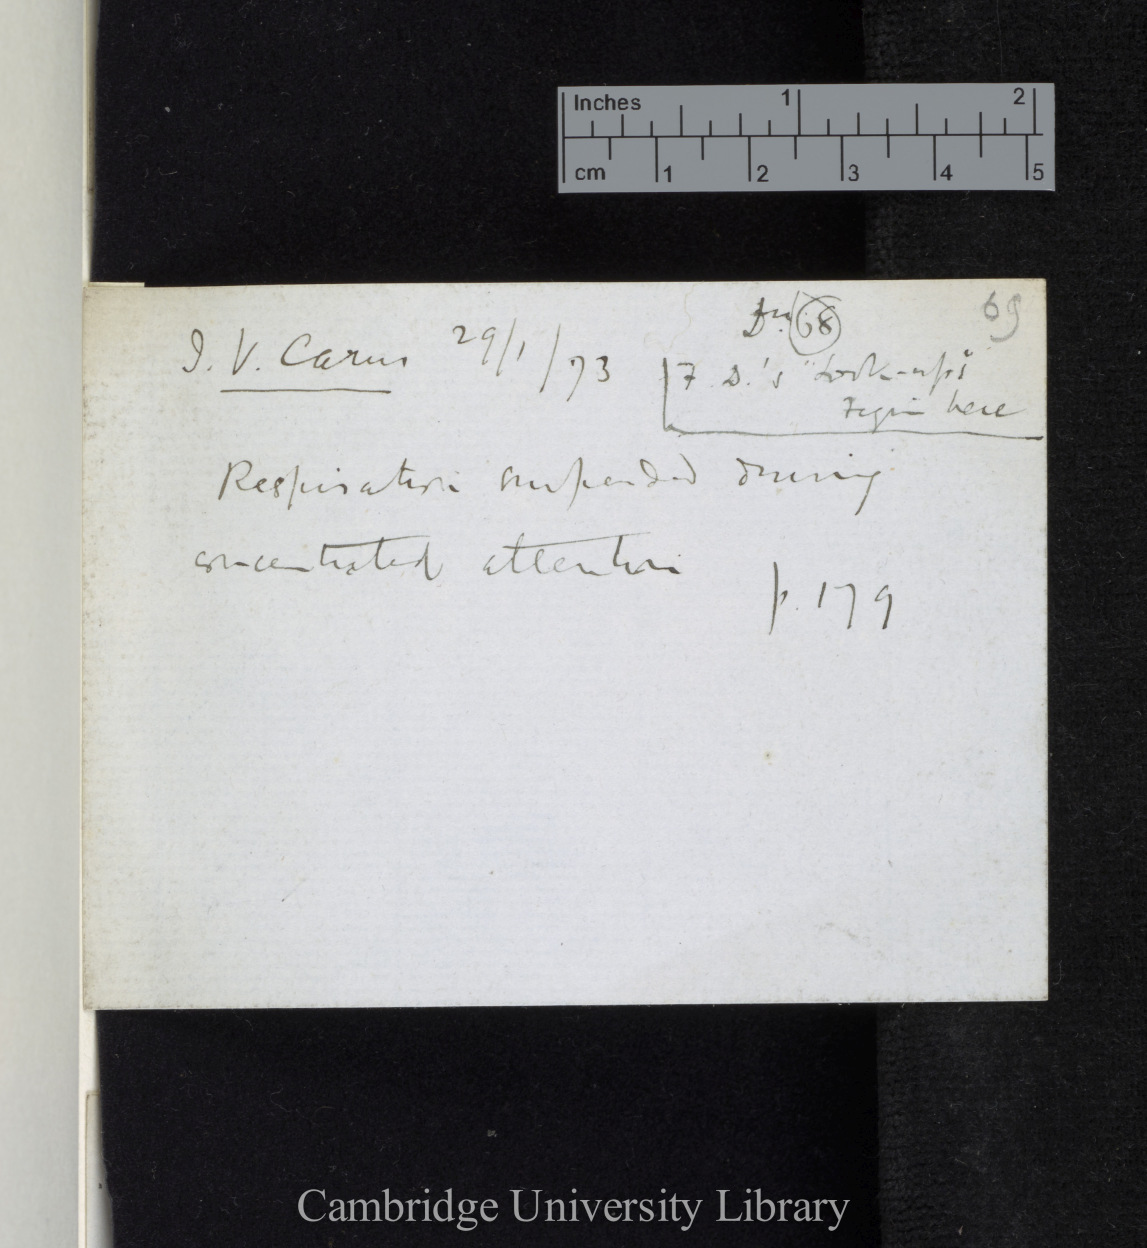 Inches 1 2
cm 1 2 3 4 5
69
68
J. V. Carus 29/1/73
F. D.'s "look-ups"
begin here
Respiration suspended during
concentrated attention
p. 179
Cambridge University Library